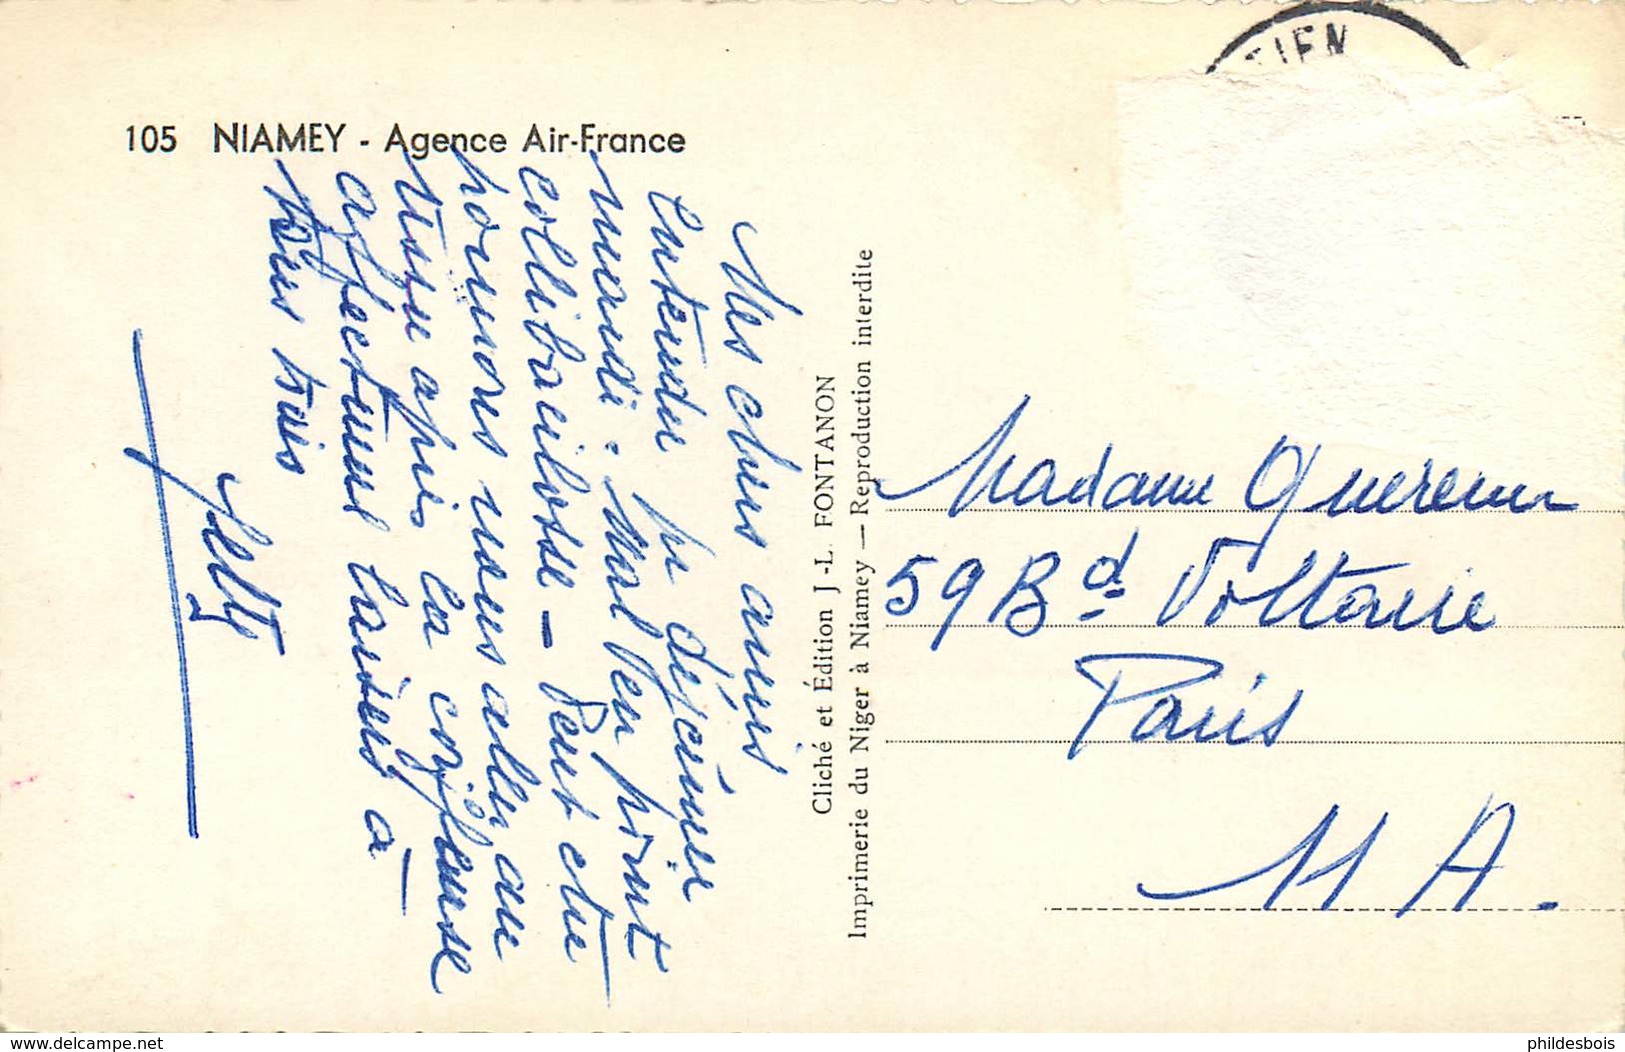 TIEN
105 NIAMEY - Agence Air-France
Mes chers amis
Entendu pr déjeuner
mardi. Mal en point
colibacillose - Peut être
pourrons nous aller au
après la
affectueux baisers à
tous trois
Cliché et Édition J.-L. FONTANON
Imprimerie du Niger à Niamey — Reproduction interdite
Madame
59 Bd Voltaire
Paris
11 A.
www.delcampe.net
phildesbois